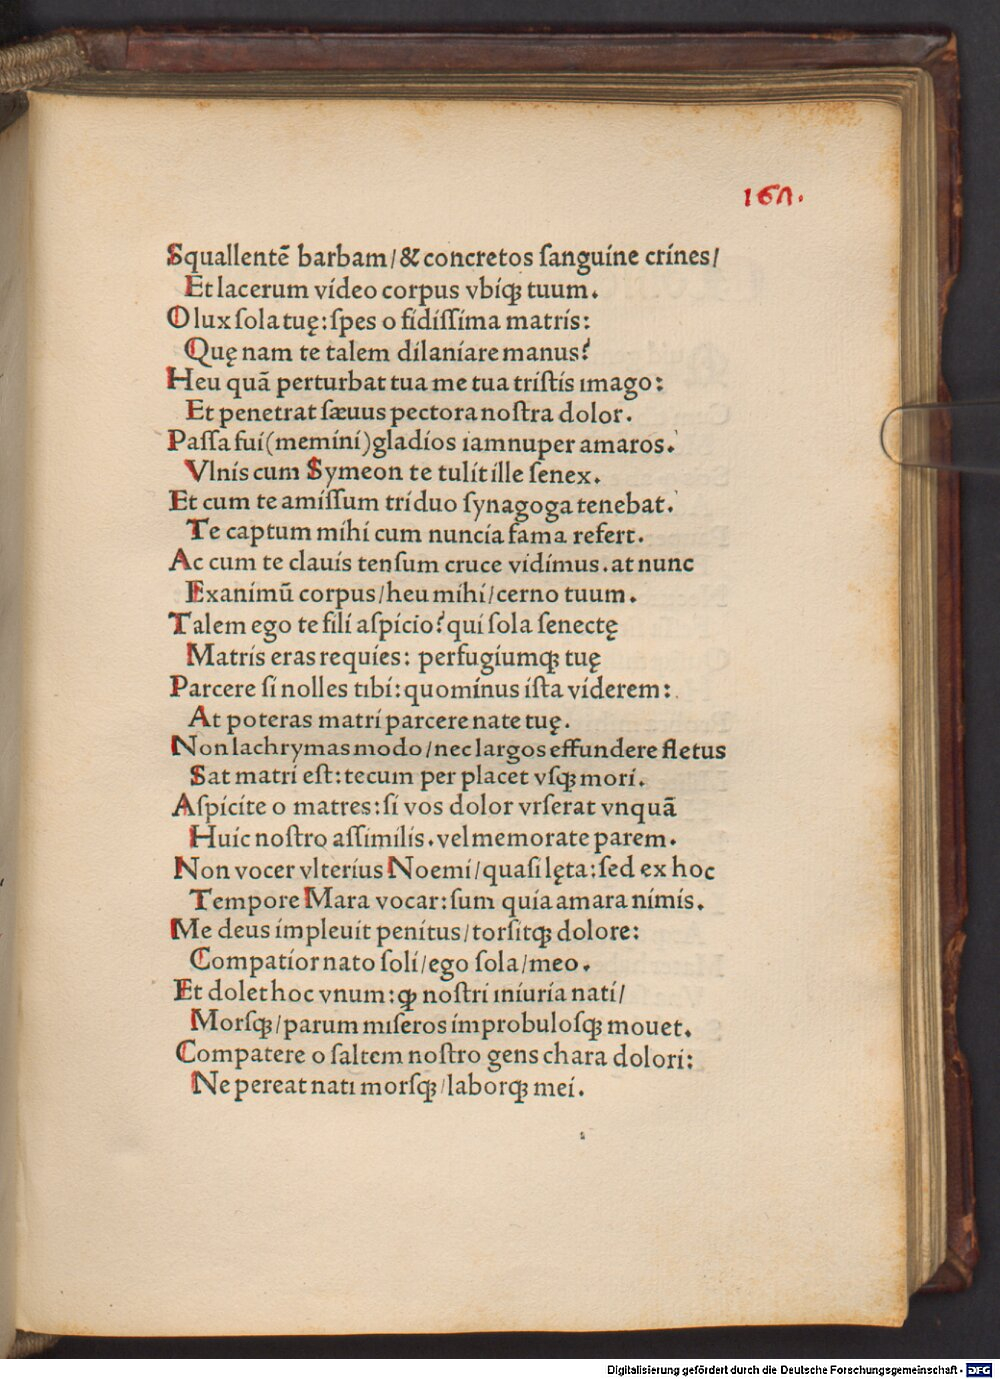 167.
Squallentē barbam/&concretos ſanguine crines/
Et lacerum video corpus vbiqꝫ tuum.
O lux ſola tuę:ſpes o fidiſſima matris:
Quę nam te talem dilaniare manus?
Heu quā perturbat tua me tua triſtis imago:
Et penetrat ſæuus pectora noſtra dolor.
Paſſa fui(memini)gladios iamnuper amaros.
Vlnis cum Symeon te tulit ille ſenex.
Et cum te amiſſum triduo ſynagoga tenebat.
Te captum mihi cum nuncia fama refert.
Ac cum te clauis tenſum cruce vidimus.at nunc
Exanimū corpus/heu mihi/cerno tuum.
Talem ego te fili aſpicio?qui ſola ſenectę
Matris eras requies: perfugiumqꝫ tuę
Parcere ſi nolles tibi:quominus iſta viderem:
At poteras matri parcere nate tuę.
Non lachrymas modo/nec largos effundere fletus
Sat matri eſt:tecum per placet vſqꝫ mori.
Aſpicite o matres:ſi vos dolor vrſerat vnquā
Huic noſtro aſſimilis.vel memorate parem.
Non vocer vlterius Noemi/quaſi lęta:ſed ex hoc
Tempore Mara vocar:ſum quia amara nimis.
Me deus impleuit penitus/torſitqꝫ dolore:
Compatior nato ſoli/ego ſola/meo.
Et dolet hoc vnum:ꝙ noſtri iniuria nati/
Morſqꝫ/parum miſeros improbuloſqꝫ mouet.
Compatere o ſaltem noſtro gens chara dolori:
Ne pereat nati morſqꝫ/laborqꝫ mei.
Digitalisierung gefördert durch die Deutsche Forschungsgemeinschaft - DFG